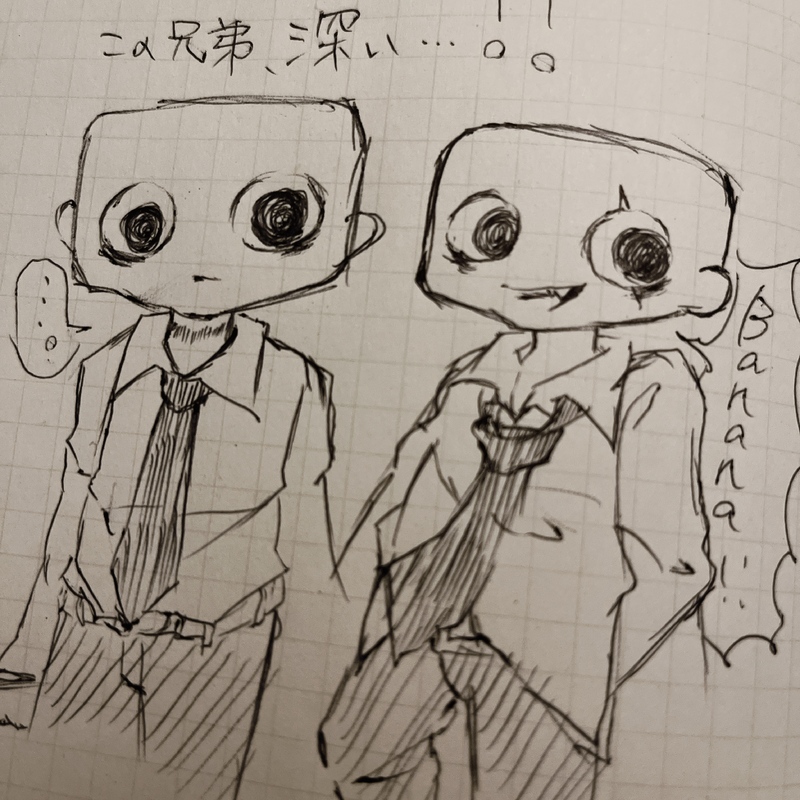 この兄弟、深い…!!
….
Banana!!